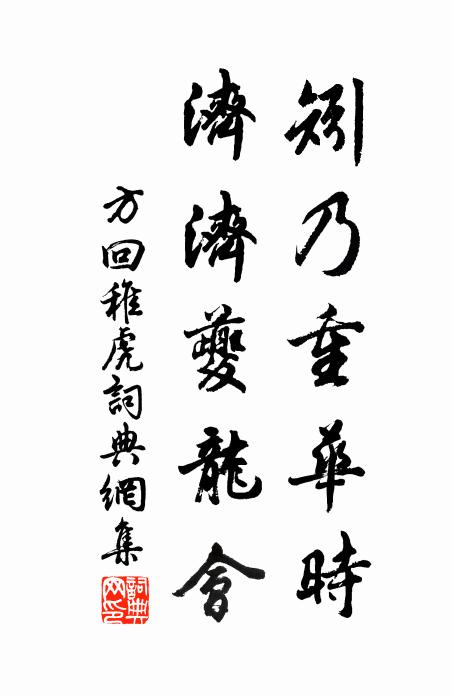 矧乃重華時
濟濟夔龍會
方回稚虎詞典網集
詞典網印